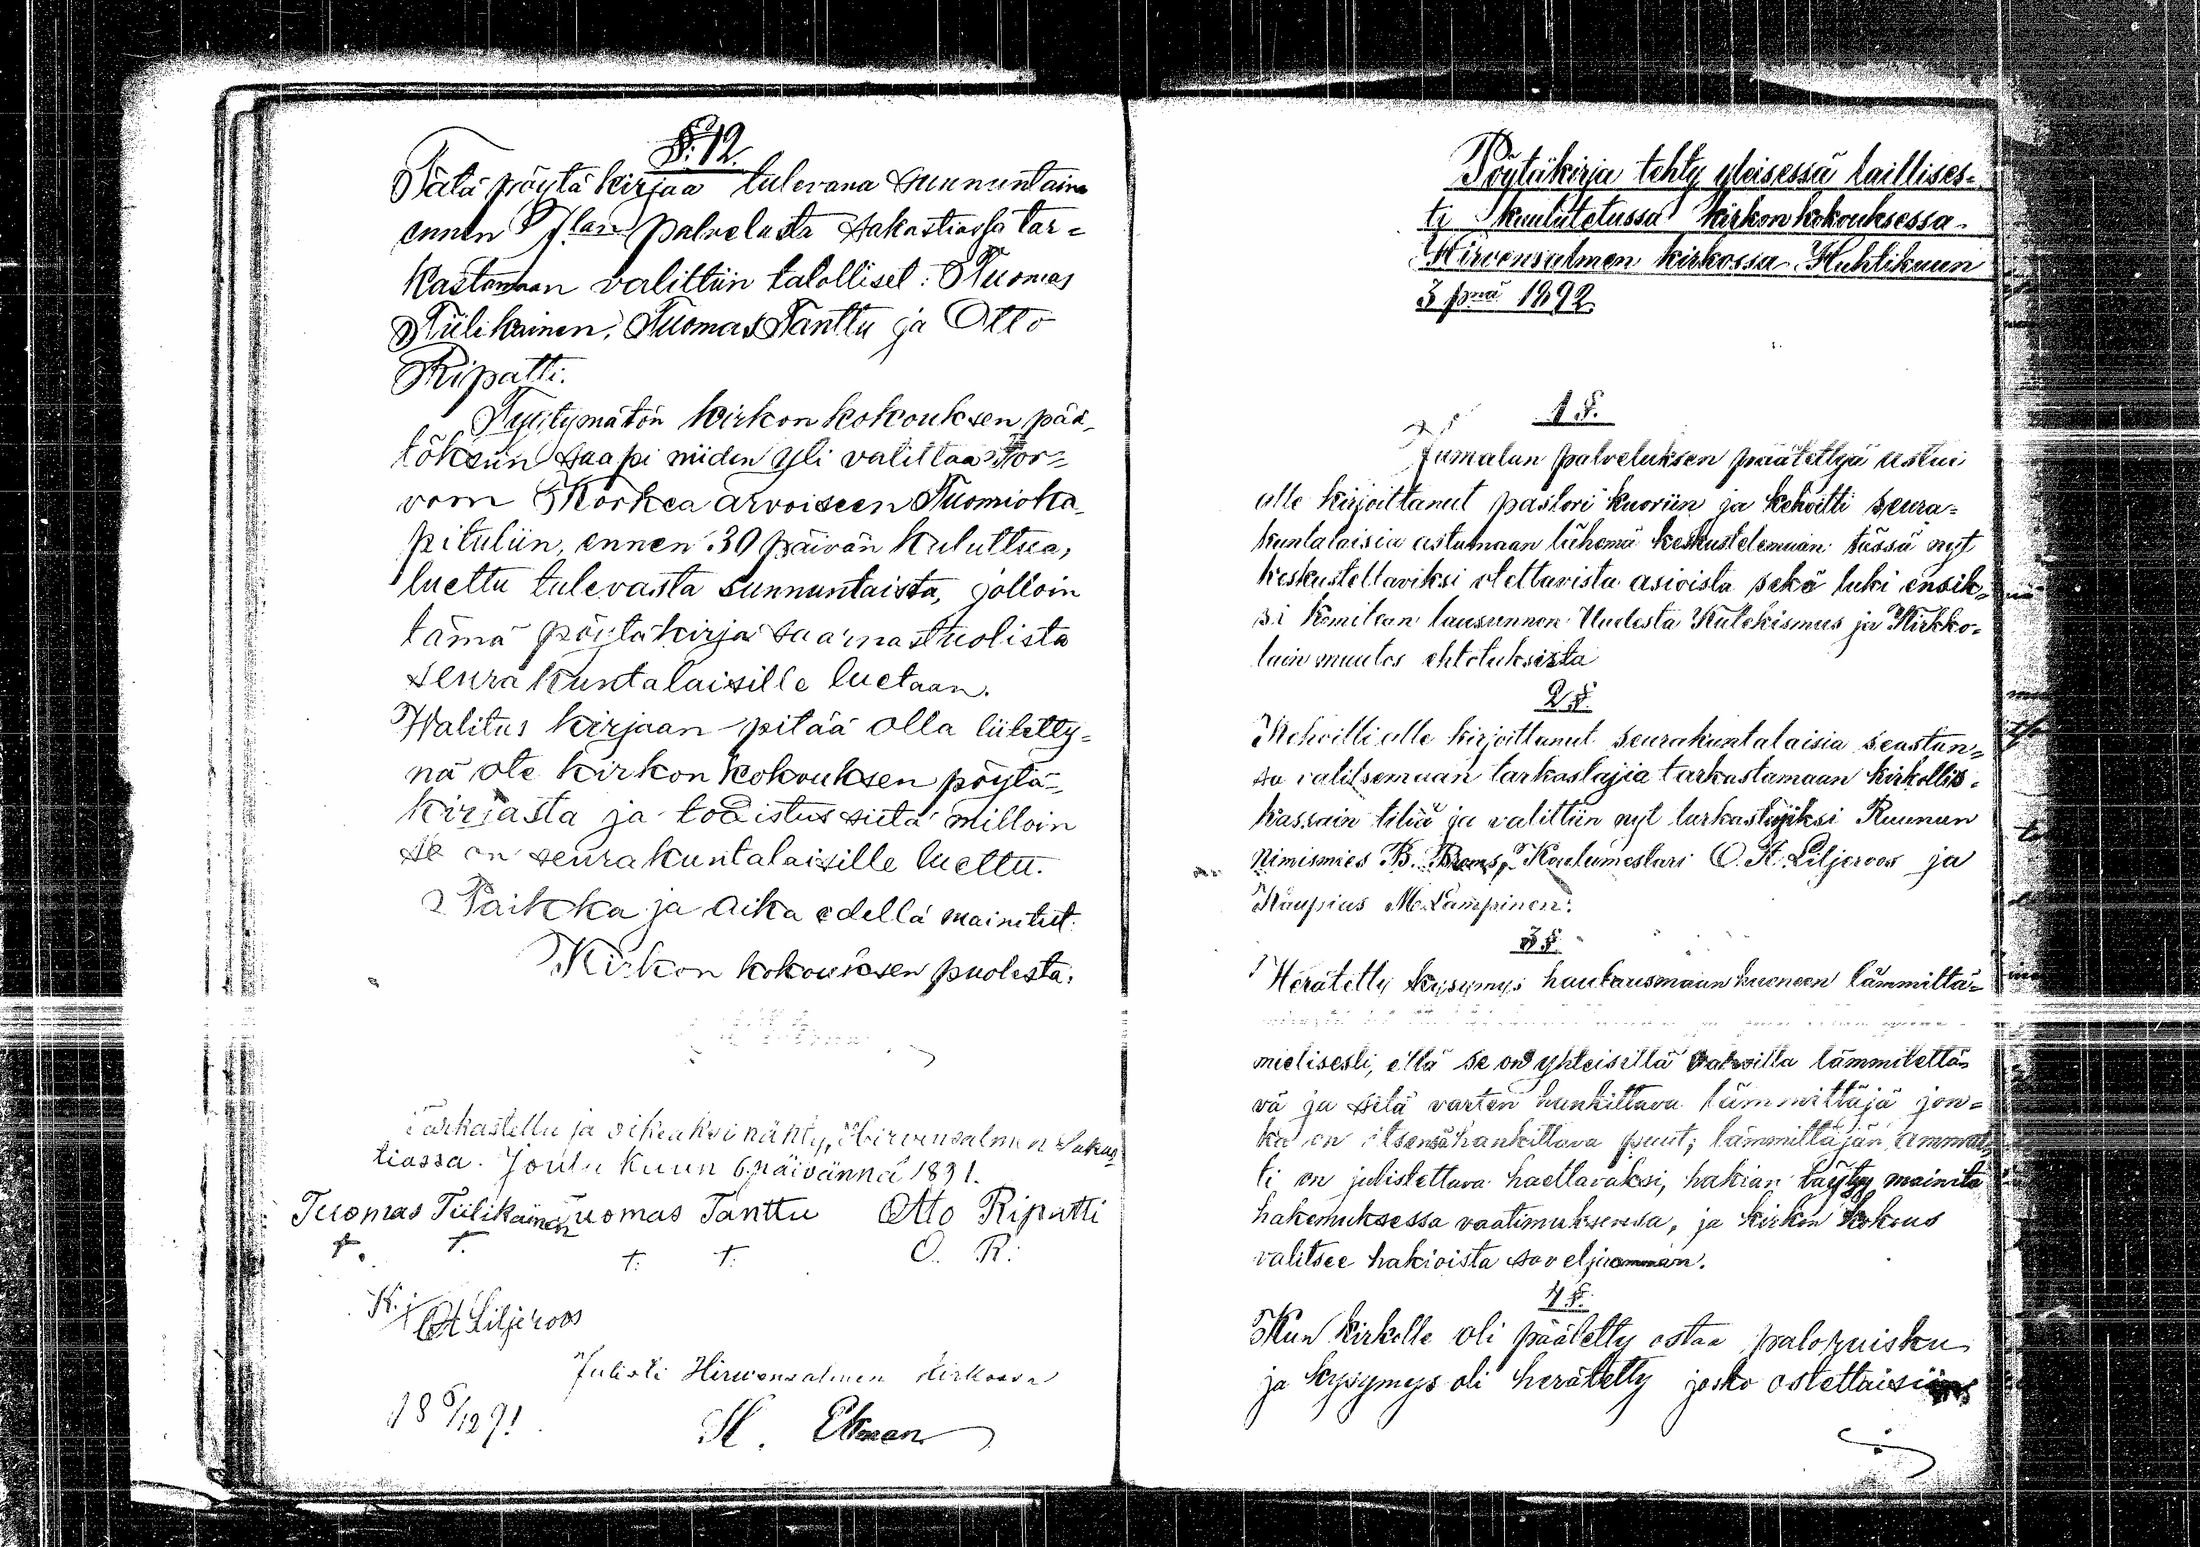 §. 12.
Tätä pöytäkirjaa tulevana sunnuntaina
ennen Jlan palvelusta sakastiossa tar=
kastamaan valittiin talolliset: Tuomas
Tiilikainen, Tuomas Tanttu ja Otto
Ripatti.
Tyytymätön kirkon kokouksen pää-
töksiin saapi niiden yli valittaa Por=
voon Korkea arvoiseen Tuomioka-
pituliin, ennen 30 päivän kuluttua,
luettu tulevasta sunnuntaista, jolloin
tämä pöytäkirja saarnastuolista
seurakuntalaisille luetaan.
Walitus kirjaan pitää olla liitetty-
nä ote kirkon kokouksen pöytä-
kirjasta ja todistus siitä milloin
se on seurakuntalaisille luettu.
Paikka ja aika edellä mainitut.
Kirkon kokouksen puolesta:
Tarkastettu ja oikeaksi nähty, Hirvensalmen Sakas
tiassa. Joulu Kuun 6 päivännä 1891.
Tuomas Tiilikainen Tuomas Tanttu Otto Ripatti
t. t. t. t. O. R.
K. j.
OA Liljeroos
Julisti Hirwensalmen kirkossa
18 6/12 91.
H. Ekman
Pöytäkirja tehty yleisessä laillises-
ti kuulutetussa kirkonkokouksessa
Hirvensalmen kirkossa Huhtikuun
3 pnä 1892
1 §.
Jumalan palveluksen päätettyä astui
alle kirjoittanut pastori kuoriin ja kehoitti seura=
kuntalaisia astumaan lähemä keskustelemaan tässä nyt
keskusteltaviksi otettavista asioista sekä luki ensik-
si Komitean lausunnon Uudesta Katekismus ja Kirkko-
lain muutos ehtotuksista
2 §.
Kehoitti alle kirjoittanut seurakuntalaisia seastan=
sa valitsemaan tarkastajia tarkastamaan kirkollis-
kassain tiliä ja valittiin nyt tarkastajiksi Ruunun
nimismies B. Koulumestari O. A. Liljeroos ja
Kaupias M. Lampinen.
3 §.
Herätetty kysymys hautausmaan huoneen lämmittä=
mielisesti, että se on yhteisillä varoilla lämmitettä-
vä ja sitä varten hankittava lämmittäjä jon=
ka on itsensä hankittava puut; lämmittäjän ammat-
ti on julistettava haettavaksi, hakian täytyy mainita
hakemuksessa vaatimuksensa, ja kirkon kokous
valitsee hakioista soveljaamman.
4 §.
Kun kirkolle oli päätetty ostaa paloruisku
ja kysymys oli herätetty josko ostettaisiin